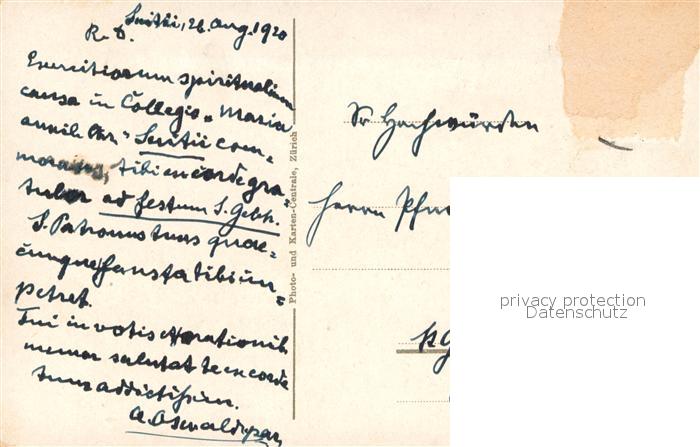 Suitii, 26. Aug. 1920
R. D.
Exercitiorum spiritualium
causa in Collegio „Maria
auxiliatr" Suitii com-
morans, tibi ex corde gra-
tulor ad festum S. Gebh.
S. Patronus tuus quae-
cunque fausta tibi im-
petret.
Tui in votis & orationib.
memor salutat te ex corde
tuus addictissim.
A. Oswald, par.
Photo- und Karten-Centrale, Zürich
Sr Hochwürden
Herrn
privacy protection
Datenschutz